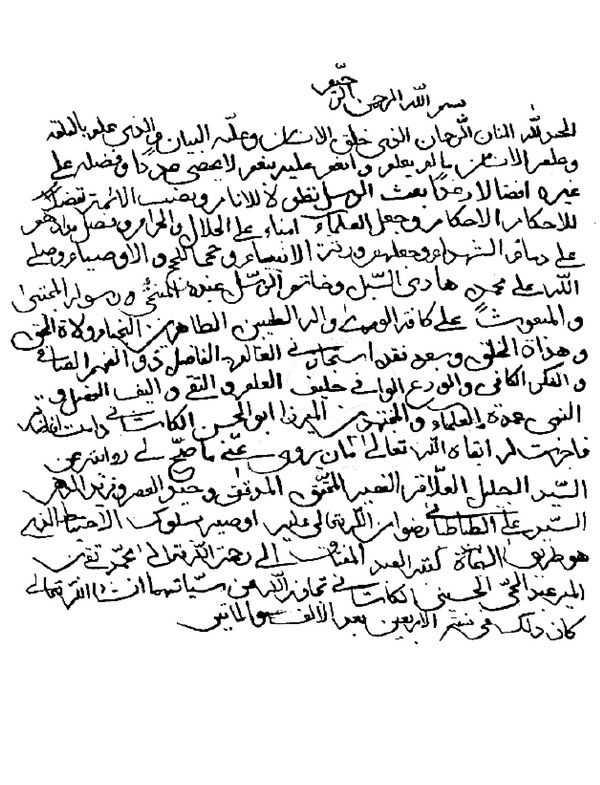 بسم الله الرحمن الرحيم
الحمد لله المنان الرحمان الذي خلق الانسان وعلمه البيان و الذي علم بالقلم
وعلم الانسان ما لم يعلم و انعم عليه بنعم لا يحصى عددا وفضله على
غيره افضالا بعث الرسل تطولا للانام و نصب الائمة تفضلا
للاحكام الاحكام وجعل العلماء امناء على الحلال والحرام و فضل مدادهم
على دماء الشهداء وجعلهم ورثة الانبياء و حججا للحجج و الاوصياء وصلى
الله على محمد هادى السبل وخاتم الرسل عبده و رسوله المجتبى
و المبعوث على كافة الورى و اله الطيبين الطاهرين النجباء ولاة الحق
و هداة الخلق و بعد فقد استجازني العالم الفاضل ذو الفهم الصافي
و الفكر الكافي والورع الوافي حليف العلم و التقى و اليف الفضل و
النهى عمدة العلماء و المجتهدين الميرزا ابو الحسن الكاشاني دامت افاضاته
فاجزت له ابقاه الله تعالى ان يروي عني ما صح لي روايته عن
السيد الجليل العلامة الفقيه المحقق المدقق وحيد العصر وفريد الدهر
السيد على الطباطبائي رضوان الله تعالى عليه اوصيه بسلوك الاحتياط الذي
هو طريق النجاة كتبه العبد المفتاق الى رحمة الله تعالى محمد تقي بن
المير عبد الحي الحسني الكاشاني تجاوز الله عن سيئاتهما ان شاء الله تعالى
كان ذلك في سنة الاربعين بعد الالف والمائتين